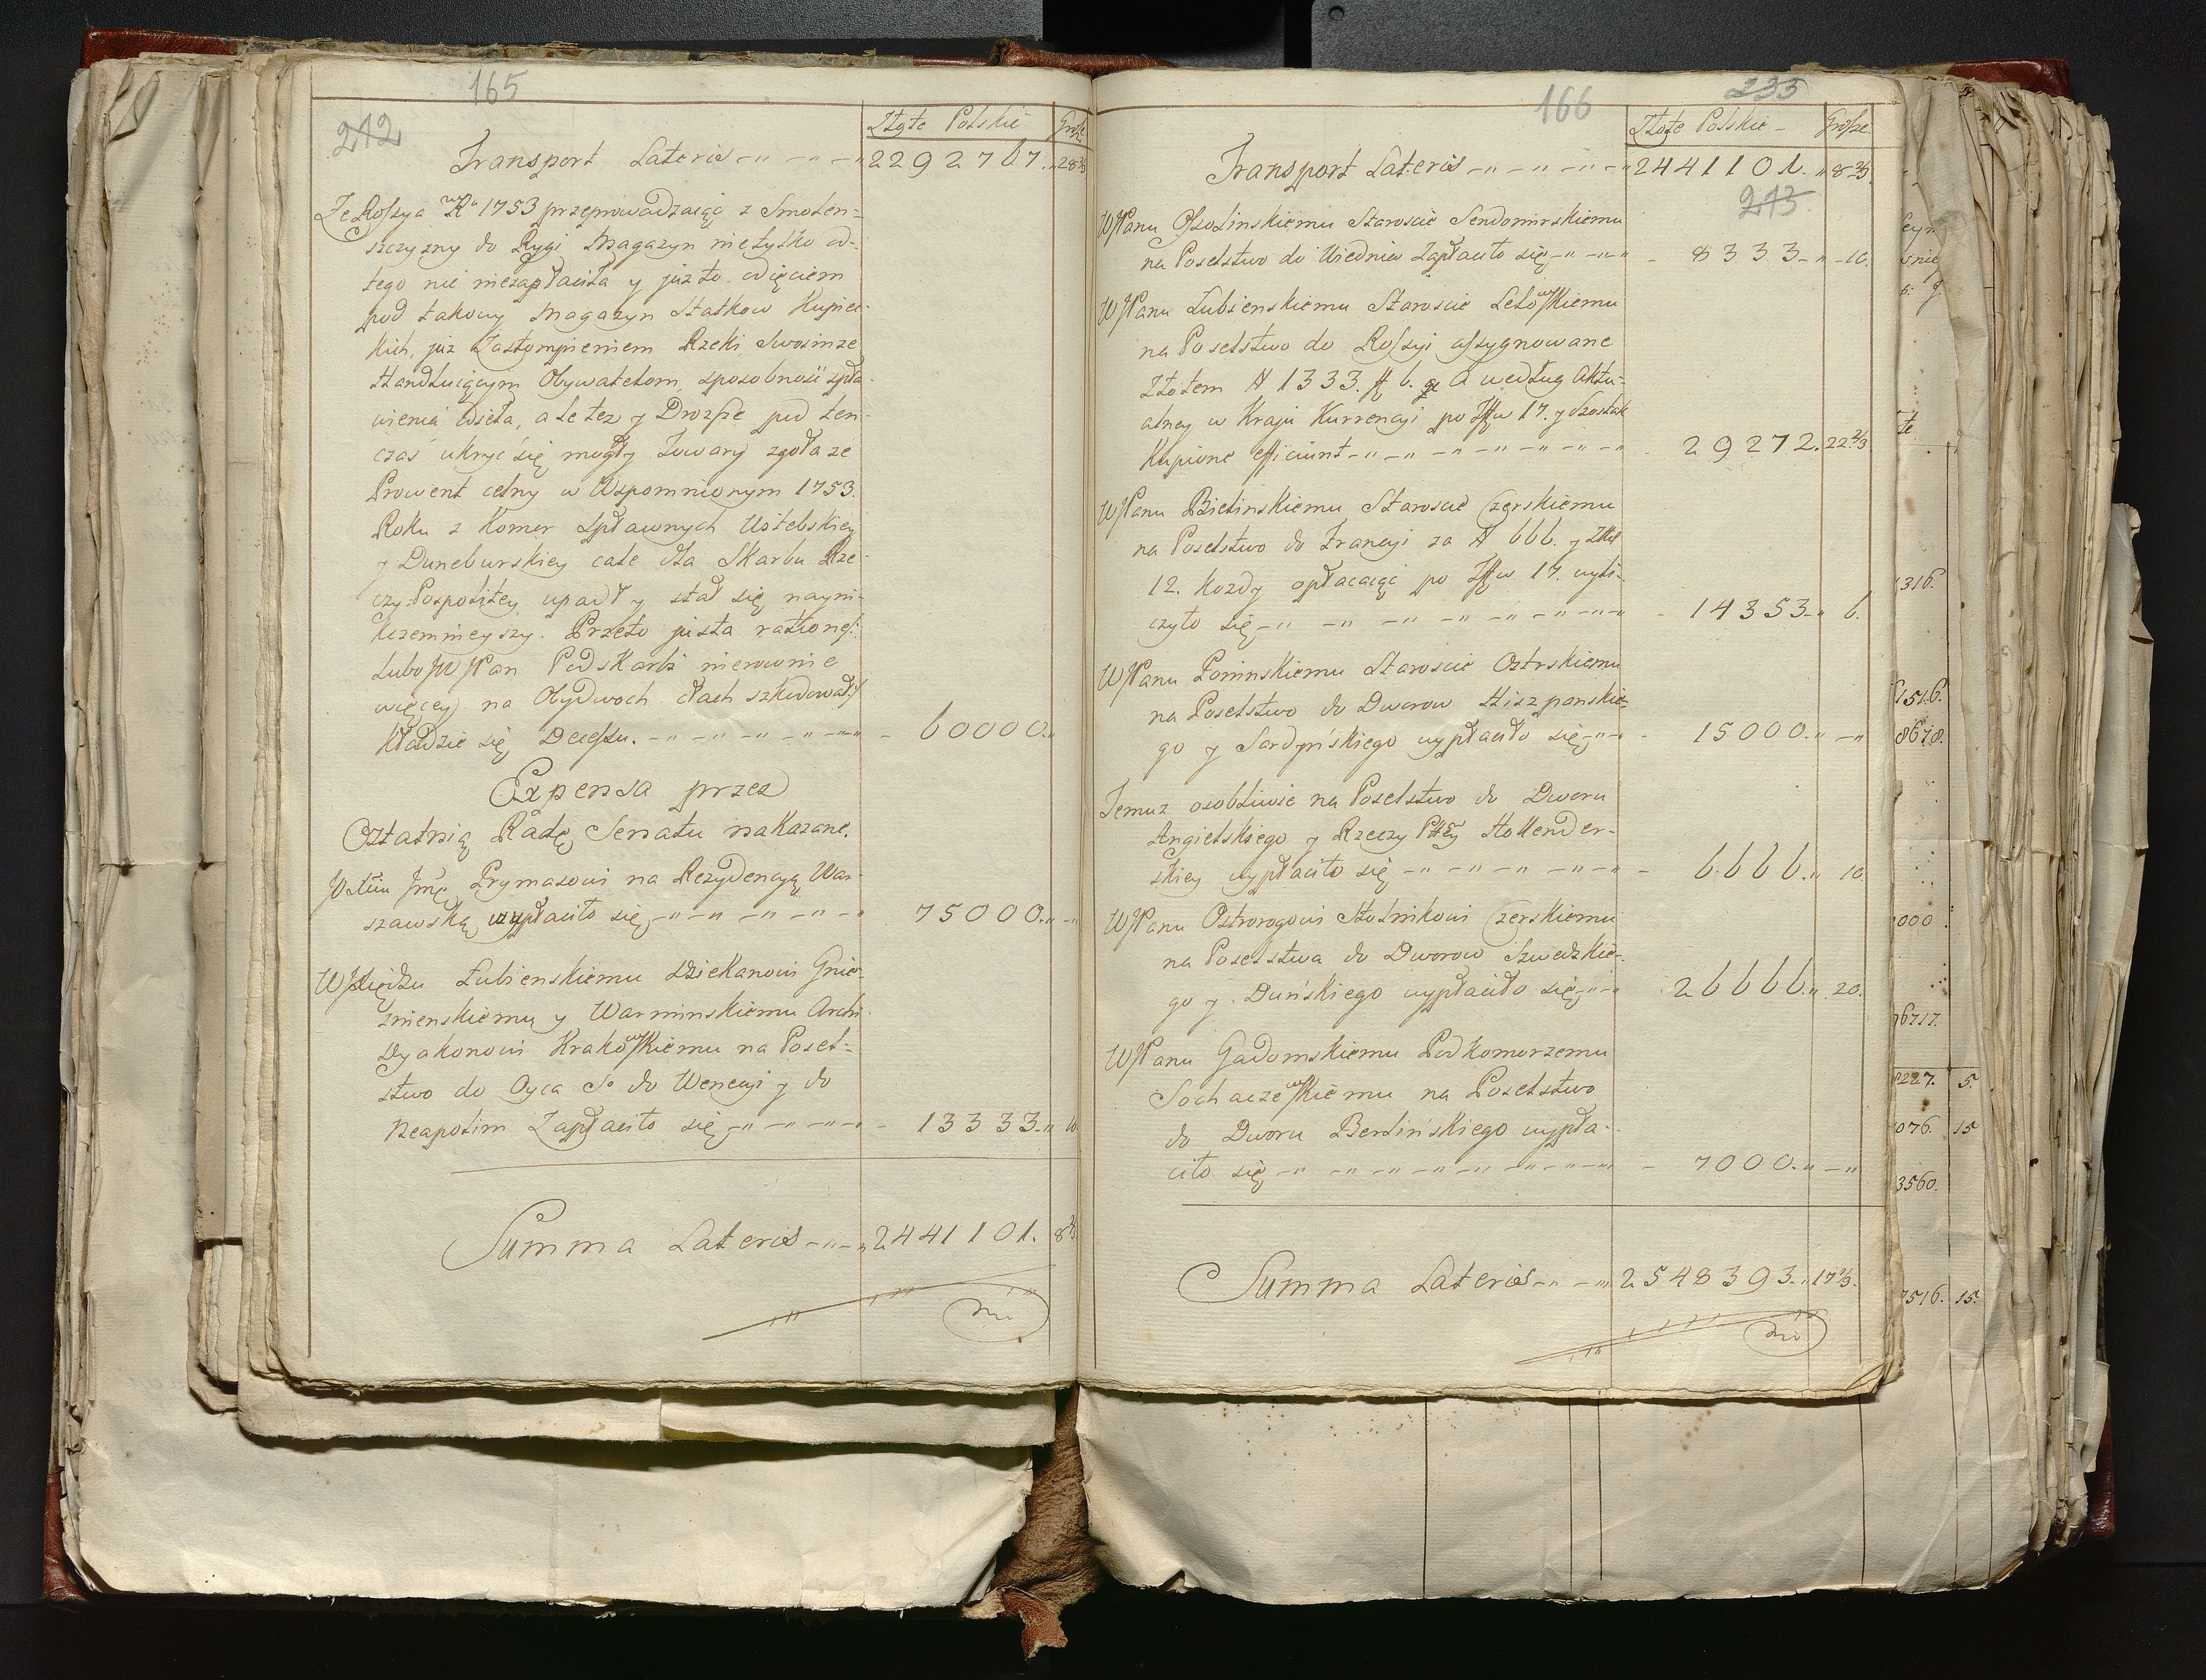 165
212
Złote Polskie Grosze
Transport Lateris 2292767. 28 2/3
Ze Rossya w Ru 1753 przeprowadzaiąc z Smolen-
szczyzny do Rygi Magazyn nietylko od
tego nic niezapłaciła y już to wzięciem
pod takowy Magazyn Statkow Kupiec-
kich, już Zastompieniem Rzeki Swosmże
Handluiącym Obywatelom, sposobność spła-
wienia wzieła, ale też y Droższe pod ten-
czas ukryć się mogły Towary zgoła że
Prowent celny w Wspomnionym 1753.
Roku z Komor Spławnych Uştebskiey
y Duneburskiey cale dla Skarbu Rze-
czy-Pospolitey upadł y stał się nayni-
kczemnieyszy. Przeto justa ratione
Lubo JW JPan Podskarbi nierownie
więcey na Obydwoch cłach szkodował
kładzie się Decessu. 60000.
Expensa przez
Ostatnią Radę Senatu nakazane.
Prymasowi na Rezydencyą War-
szawską wypłaciło się 75000.
WJXiędzu Łubienskiemu Dziekanowi Gnie-
znienskiemu y Warminskiemu Archi-
Dyakonowi Krakowskiemu na Posel-
stwo do Oyca So do Wenecyi y do
Neapolim Zapłaciło się 13333. 10
Summa Lateris 2441101. 8 2/3
166
235
Złote Polskie Grosze
Transport Lateris 2441101. 8 2/3.
213
WJPanu Ossolinskiemu Staroscie Sendomirskiemu
na Poselstwo do Wiednia Zapłaciło się 8333. 10.
WJPanu Lubienskiemu Staroscie Lelowskiemu
na Poselstwo do Rossyi assygnowane
Złotem # 1333. 6. a według Aktu-
alney w Kraju Kurrencyi po 17. y Szostak
Kupione efficiunt 29272. 22 2/3
WJPanu Bielinskiemu Staroscie Czerskiemu
na Poselstwo do Francyi za # 666. y
12. Kazdy opłacaiąc po 17. wyli-
czyło się 14353. 6.
WJPanu Poninskiemu Staroscie Ostrskiemu
na Poselstwo do Dworow Hiszpanskie-
go y Sardyńskiego wypłaciło się 15000.
Temuz osobliwie na Poselstwo do Dworu
Angielskiego y Rzeczy Pttey Hollender-
skiey wypłaciło się 6666. 10.
WJPanu Ostrorogowi Stolnikowi Czerskiemu
na Poselstwa do Dworow Szwedzkie-
go y Duńskiego wypłaciło się 26666. 20.
WJPanu Gadomskiemu Podkomorzemu
Sochaczewskiemu na Poselstwo
do Dworu Berlińskiego wypła-
ciło się 7000.
Summa Lateris 2548393. 17 1/3.